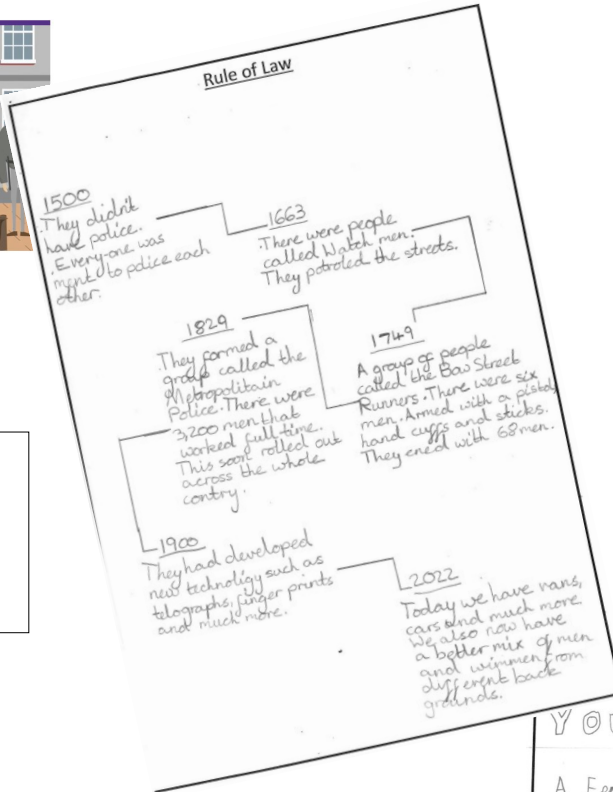 Rule of Law
1500
.They didn't
have police.
.Every-one was
ment to police each
other.
1663
.There were people
called Watch men.
They potroled the streets.
1749
A group of people
called the Bow Street
Runners. There were six
men. Armed with a pistol,
hand cuffs and sticks.
They ened with 68men.
1829
.They formed a
group called the
Metropolitain
Police. There were
3,200 men that
worked full time.
This soon rolled out
across the whole
contry.
1900
They had developed
new technoligy such as
telographs, finger prints
and much more.
2022
Today we have vans,
cars and much more
We also now have
a better mix of men
and wimmen from
different back
grounds.
YOU
A Fee